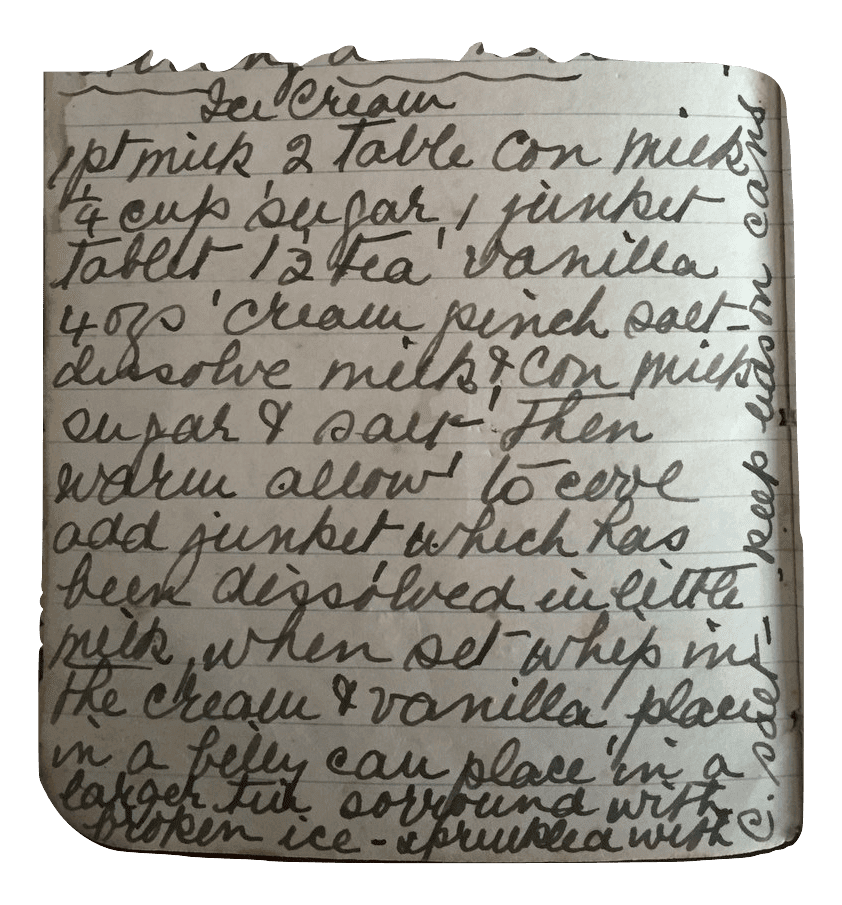 Ice Cream
1pt milk 2 Table Con Milk
1/4 cup sugar, 1 junket
tablet 1/2 tea vanilla
4 ozs cream pinch salt-
dissolve milk & Con Milk
sugar & salt Then
warm allow to cool
add junket, which has
been dissolved in little
milk, when set whip in
the cream & vanilla, place
in a billy can place in a
larger tin sorround with
broken ice - sprinkled with
C. salt - keep on cans